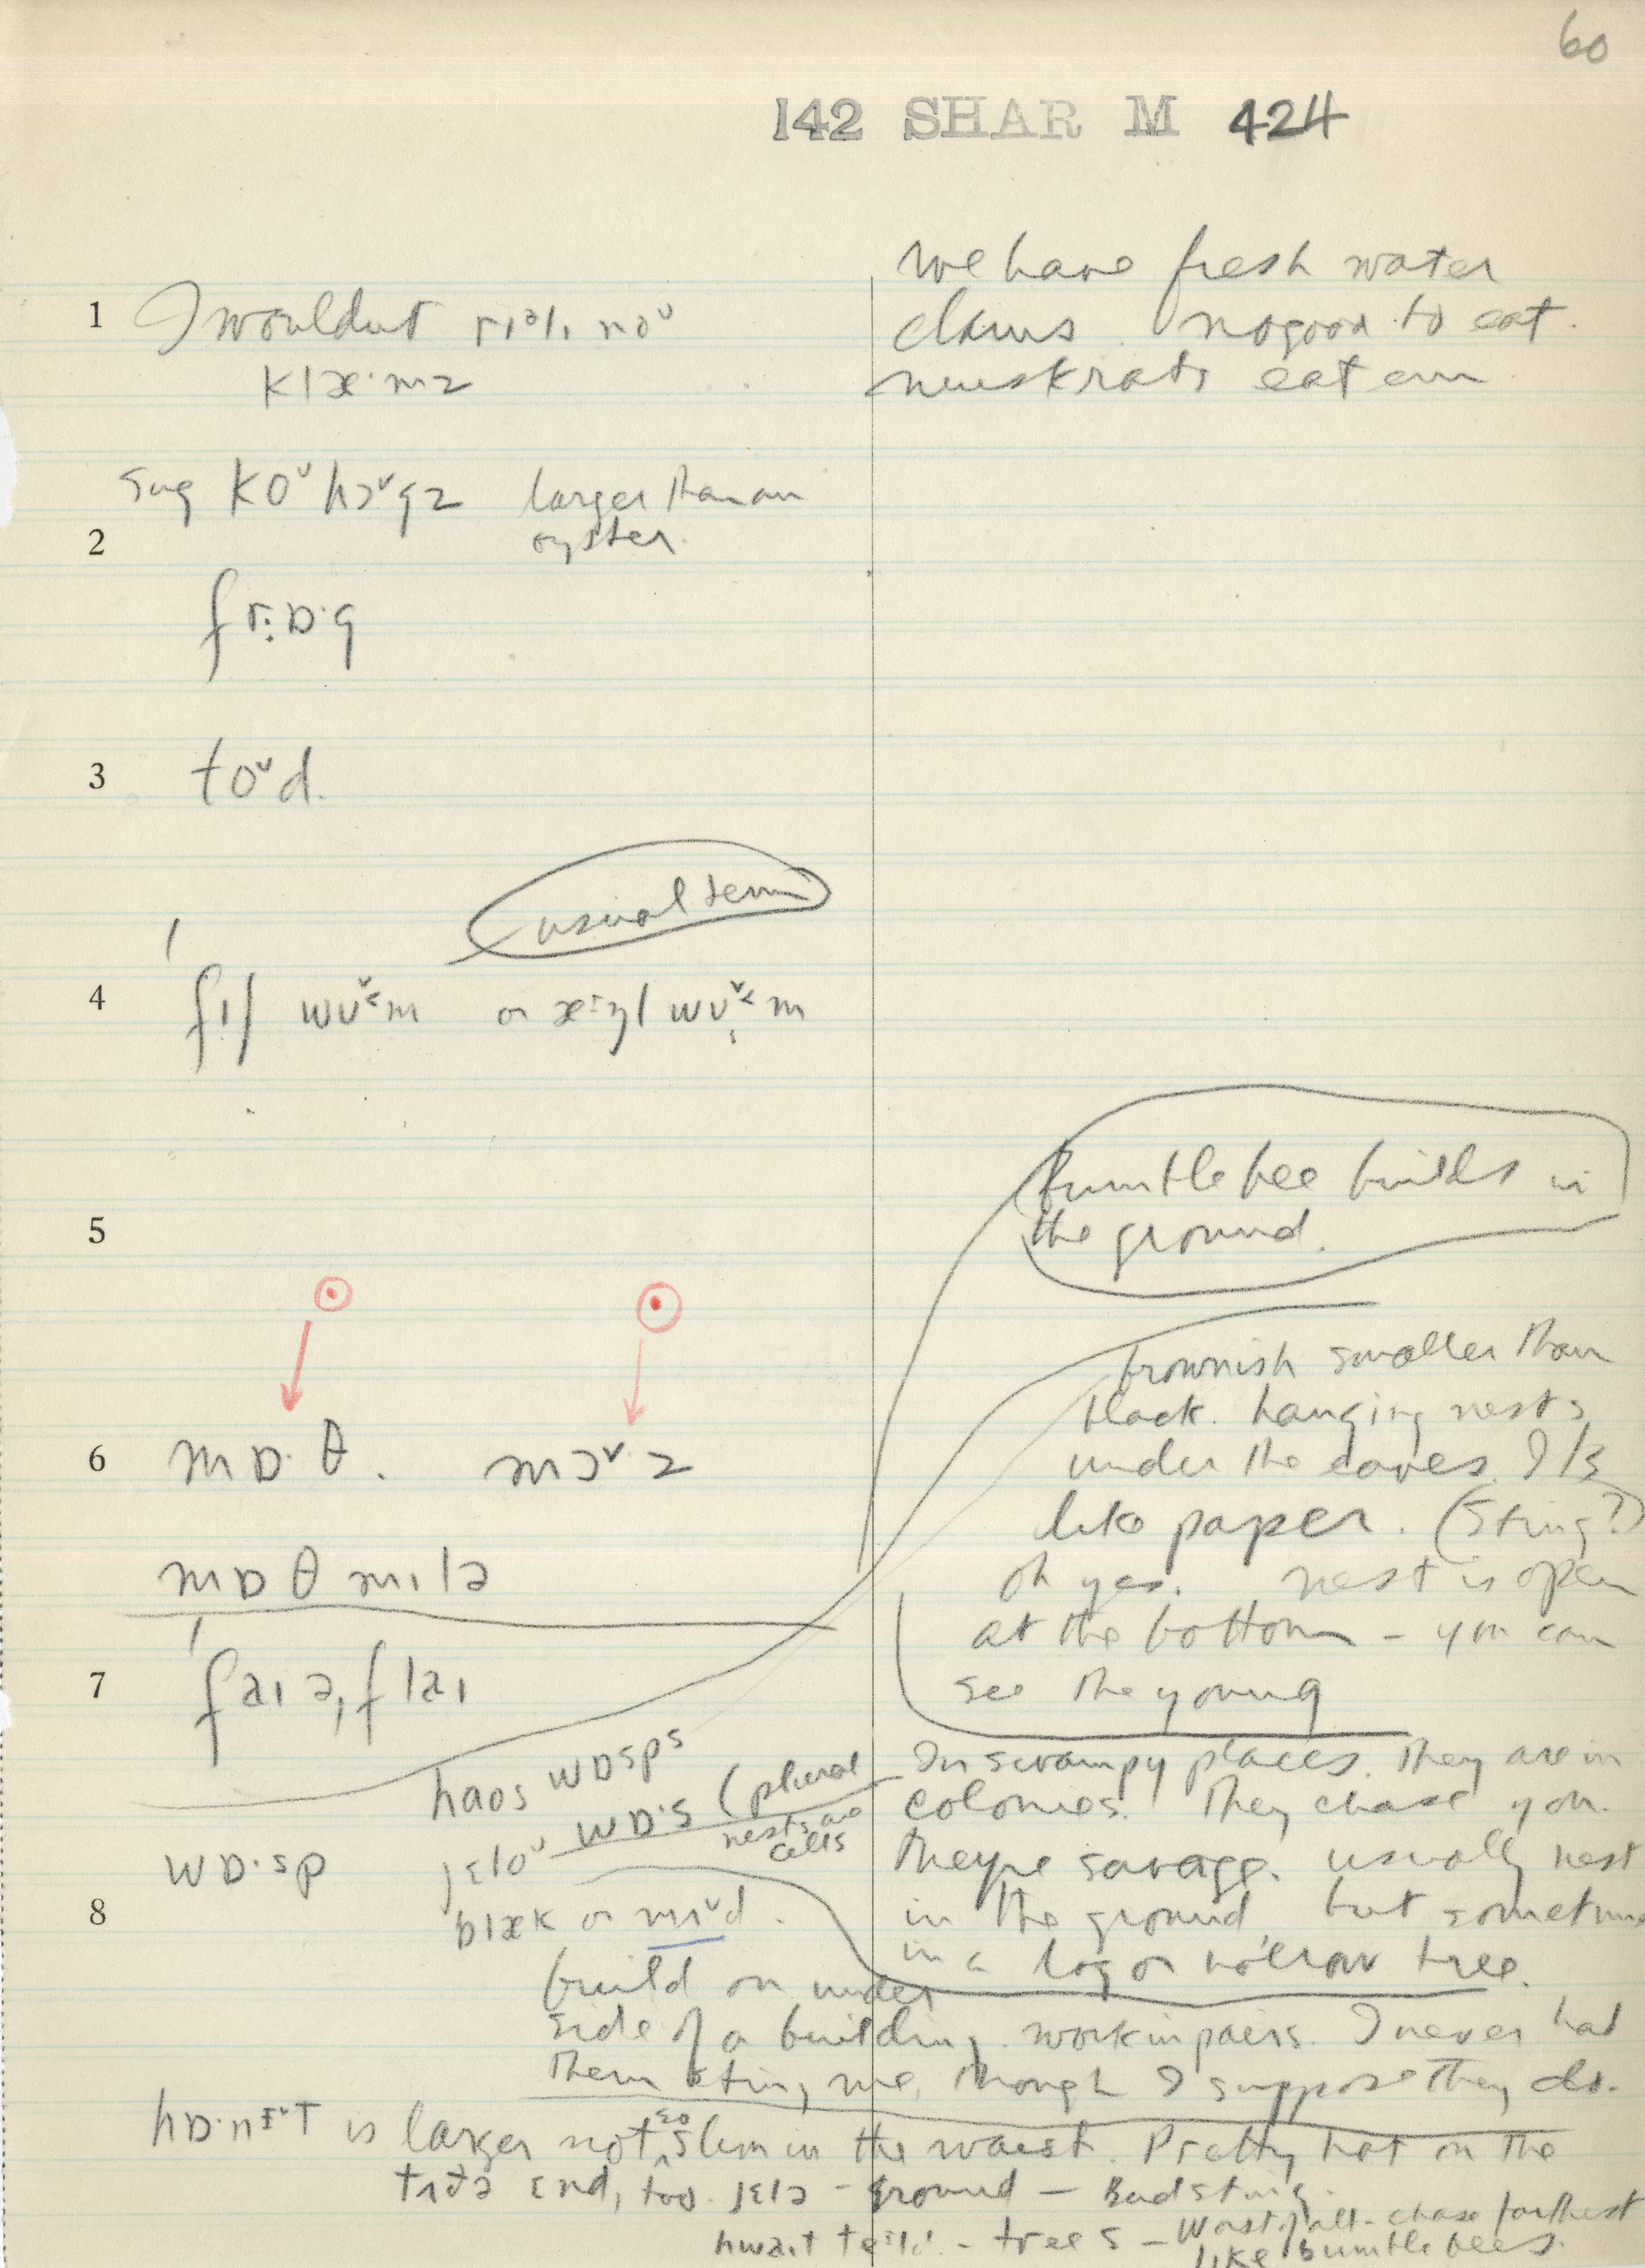 60
142 SHAR M 424
1 I wouldnt rɪəlɪ noᵛ
klæ·mz
We have fresh water
clams no good to eat.
muskrats eat em
sug koᵛhɔᵛgz larger than an
oyster.
2
frɒ·g
3 toᵛd.
usual term
4 fɪʃ wʋᵛ˂m or æ·ŋl wʋᵛ˂m
bumble bee builds in
the ground.
5
brownish smaller than
black. hanging nests
under the eaves. It's
like paper. (Sting?)
oh yes. nest is open
at the bottom – you can
see the young
6 mɒ·θ. mɔᵛ·z
mɒθ mɪlə
7 faɪə,flaɪ
haos wɒsps
jɛloᵛ wɒ·s (plural
nests are
cells
In swampy places. They are in
colonies. They chase you.
They're savage. usually nest
in the ground but sometime
in a log or hollow tree.
wɒ·sp
8 blæk or mɪᵛd.
build on under
side of a building. work in pairs. I never had
them sting me, though I suppose they do.
hɒ·nɪᵛt is larger not so slim in the waist. Pretty hot on the
end, too. jɛlə – ground – Bad sting.
hwaɪt – trees – Worst of all – chase farthest
like bumblebees.